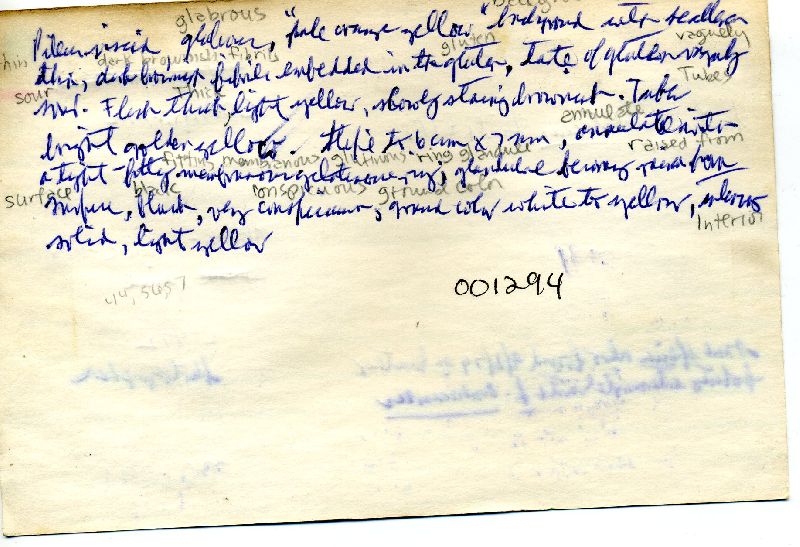 glabrous
Pileus viscid glabrous, "pale orange yellow" background with scattered
gluten vaguely
dark brownish fibrils
thin, dark brownish fibrils embedded in the gluten, taste of gluten vaguely
sour Thick Tubes
sour. Flesh thick, light yellow, slowly staining brownish. Tubes
annulate
bright golden yellow. Stipe to 6 cm x 7 mm, annulate with
fitting membranous glutinous ring glandulae raised from
a tight-fitting membranous gelatinous ring, glandulae becoming raised from
surface black conspicuous ground color
surface, black, very conspicuous, ground color white to yellow,
Interior
solid, light yellow
001294
44,5657